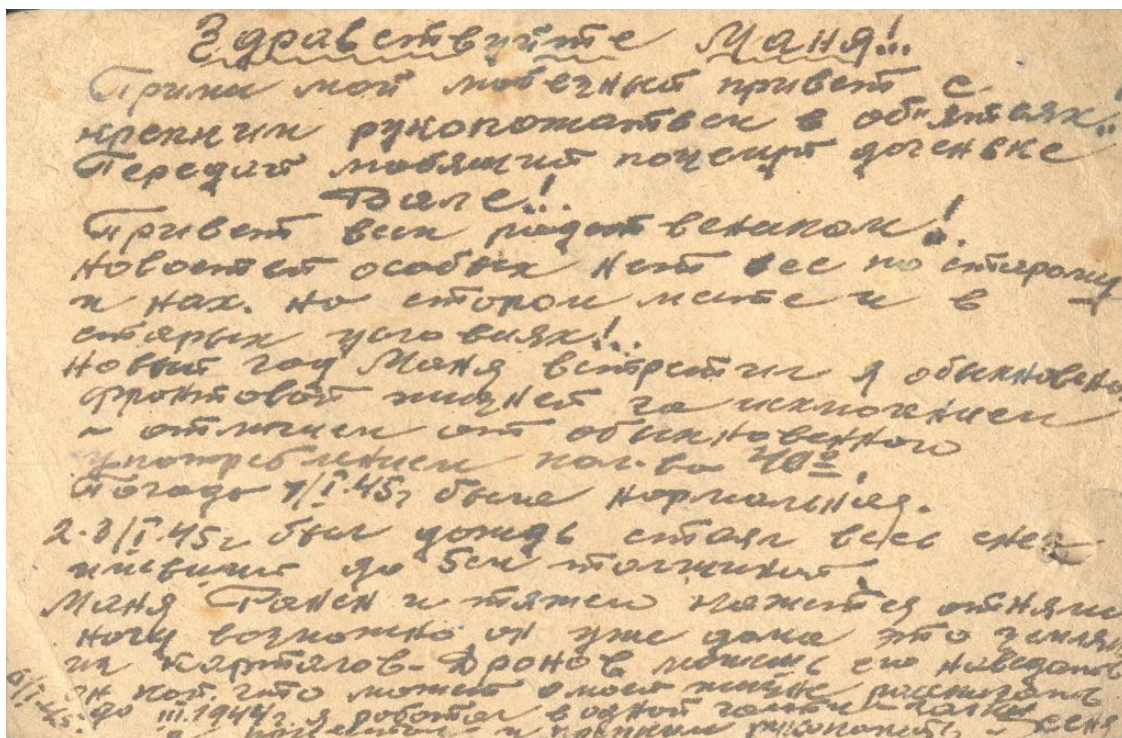 Здравствуйте Маня!..
Прими мой любезный привет с
крепким рукопожатьем в объятьях..!
Передай любящий поцелуй доченьке
Вале!..
Привет всем родственикам!.
Новостей особых нет все по старому
и нах. на старом месте и в
старых условиях!..
Новый год Маня встретил я обыкновено
фронтовой жизней за исключением
отличием от обыкновенного
употреблением кол-ва 40º.
Погада 1/I.45г была нормальная.
2-3/I.45г был дождь стаял весь снег
имевший до 5см толщиной.
Маня Ранен и тяжело кажется отняли
ногу возможно он уже дома это земляк
из Карталов-Дронов можешь его наведать
он кой что может о моей жизни рассказать
до III.1944г. я работал в одной части
с приветом и крепким рукопожать Сеня